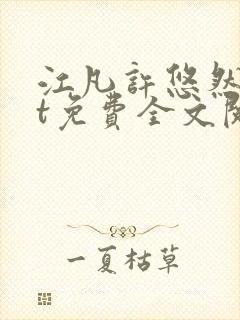 江凡許悠然
t免費全文閱
一夏枯草